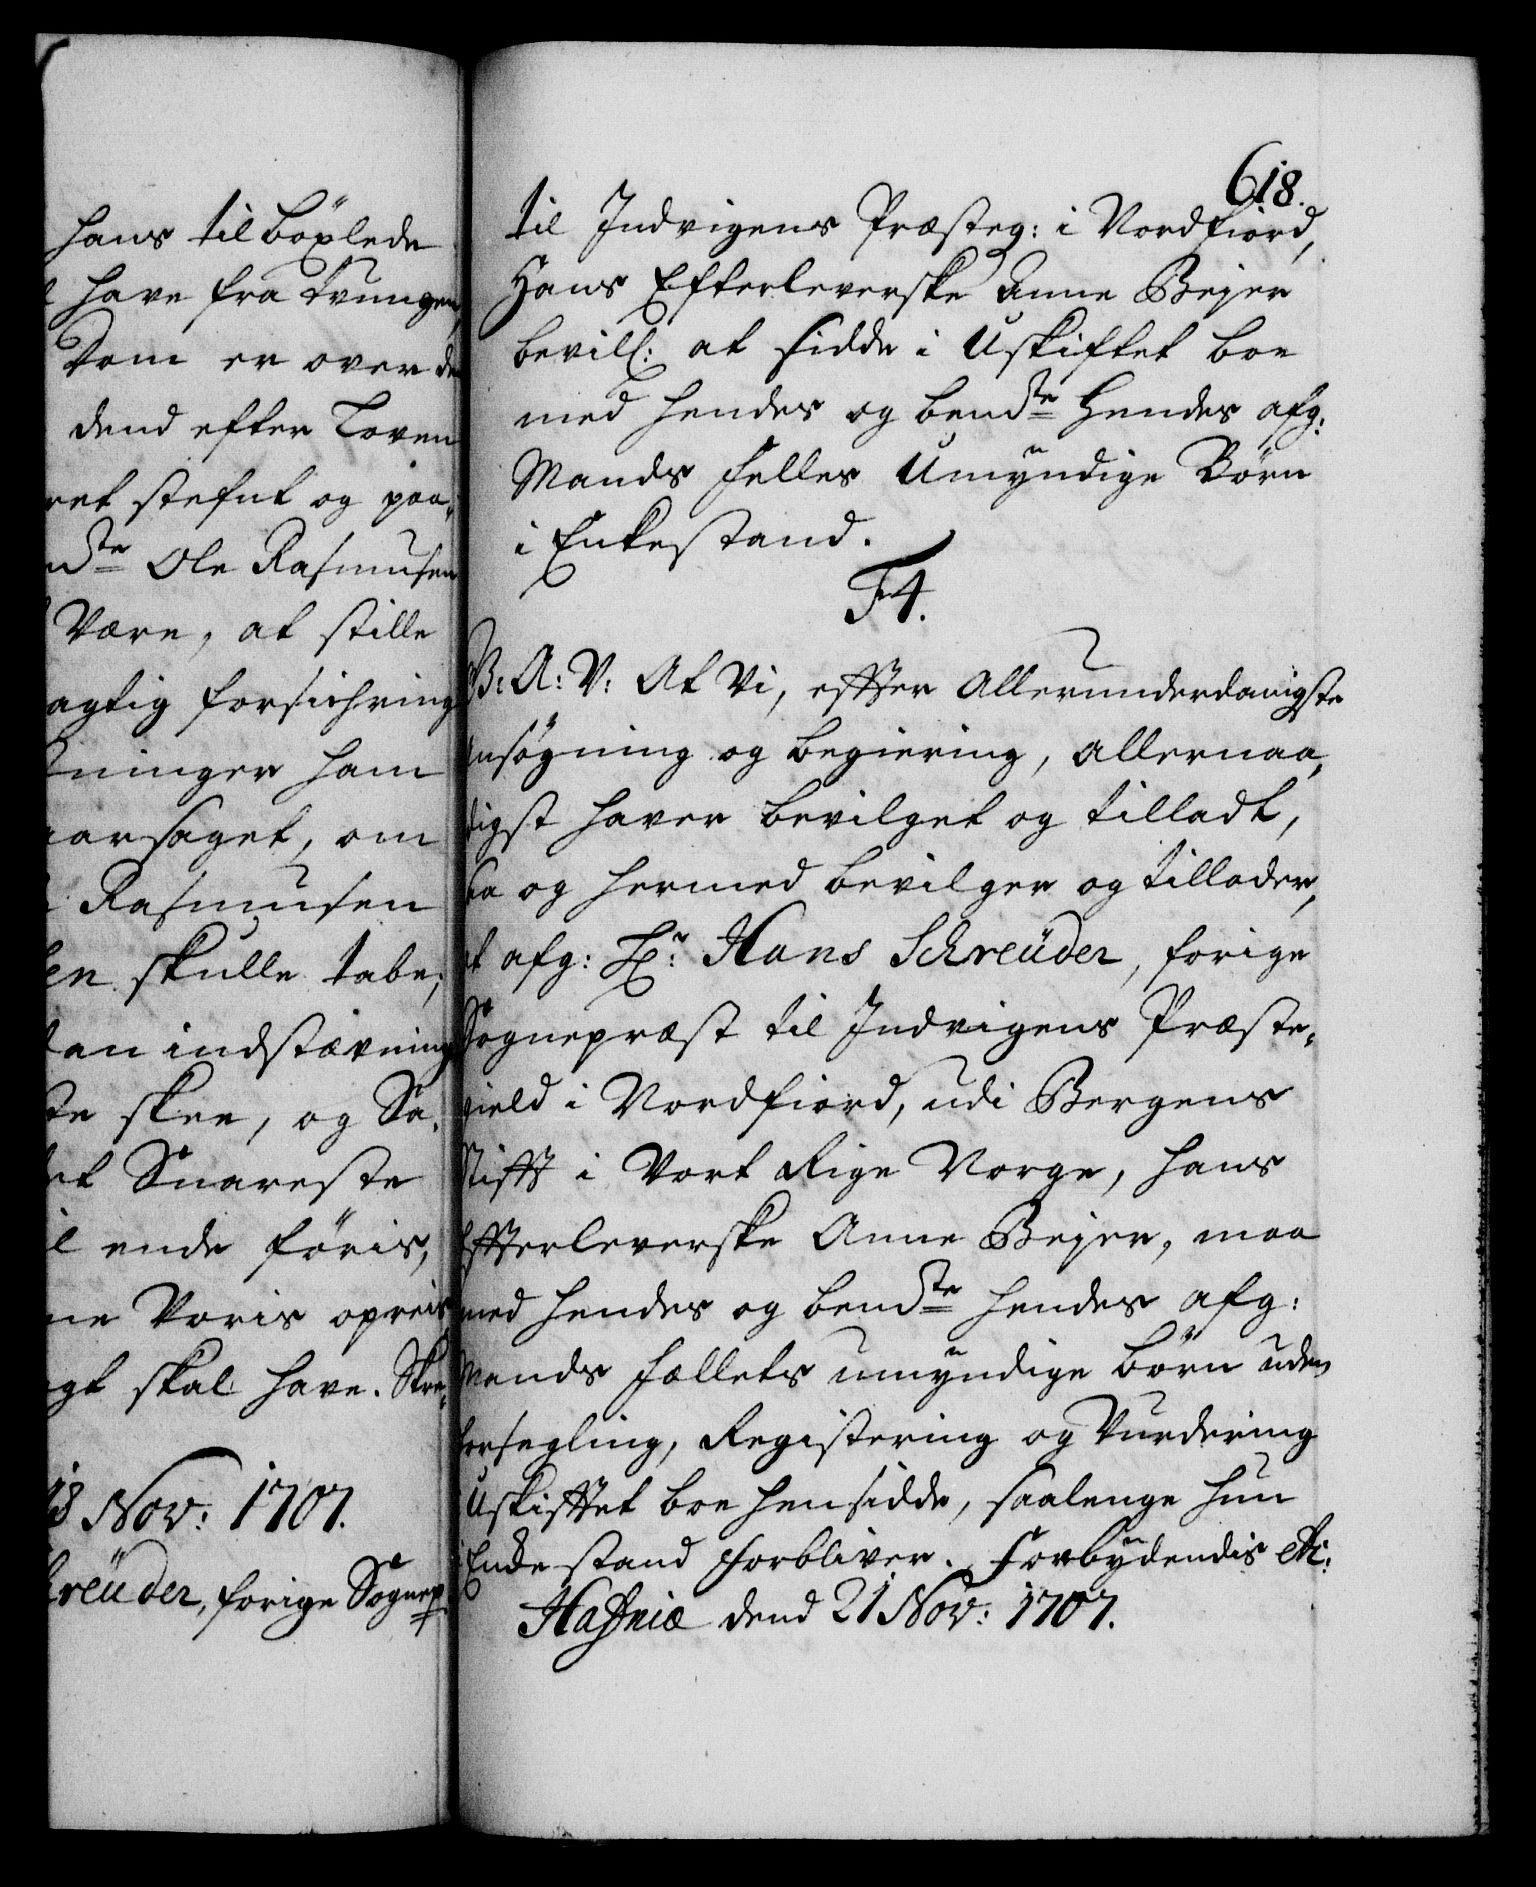 hans tilböxlede
have fra tvungen,
Dom er over de
dend efter Loven
ret stefnt og paa-
dste Ole Rasmusen
være, at stille
agtig forsichring
ninger ham
aarsaget, om
Rasmusen
en skulle tabe,
an indstævning
te skee, og Sa-
et Snareste
l ende föris,
ne Voris opreis
gt skal have. Skre-
18 Nov: 1707.
reüder, forige Sognep
618.
til Indvigens Præsteg: i Nordfiord,
Hans Efterleverske Anne Bejer
bevill: at sidde i Uskiftet boe
med hendes og bemdte Hendes afg:
Mands felles Umyndige Börn
i Enkestand.
F4.
B: A: V: At Vi, effter Allerunderdanigste
Ansögning og begiering, allernaa-
digst haver bevilget og tilladt,
saa og hermed bevilger og tillader,
at afg: Hr: Hans Schreüder, forige
Sognepræst til Indvigens Præste-
gield i Nordfiord, udi Bergens
Stifft i Vort Rige Norge, hans
Effterleverske Anne Bejer, maa
med hendes og bemdte hendes afg:
Mands fællets umyndige börn uden
forsegling, Registering og Vurdering
i Uskifftet boe hensidde, saalenge hun
i Enckestand forbliver. Forbydendis etc:
Haffniæ dend 21 Nov: 1707.